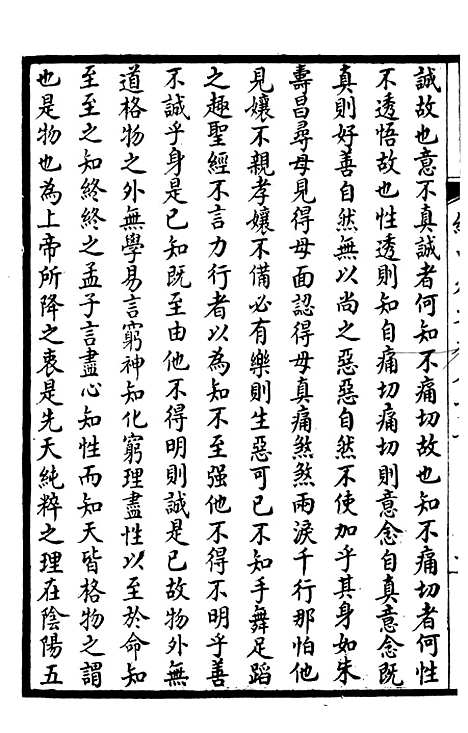 誠故也意不真誠者何知不痛切故也知不痛切者何性
不透悟故也性透則知自痛切痛切則意念自真意念既
真則好善自然無以尚之惡惡自然不使加乎其身如朱
壽昌尋母見得母面認得母真痛煞煞兩淚千行那怕他
見孃不親孝孃不備必有樂則生惡可已不知手舞足蹈
之趣聖經不言力行者以為知不至强他不得不明乎善
不誠乎身是已知既至由他不得明則誠是已故物外無
道格物之外無學易言窮神知化窮理盡性以至於命知
至至之知終終之孟子言盡心知性而知天皆格物之謂
也是物也為上帝所降之衷是先天純粹之理在陰陽五